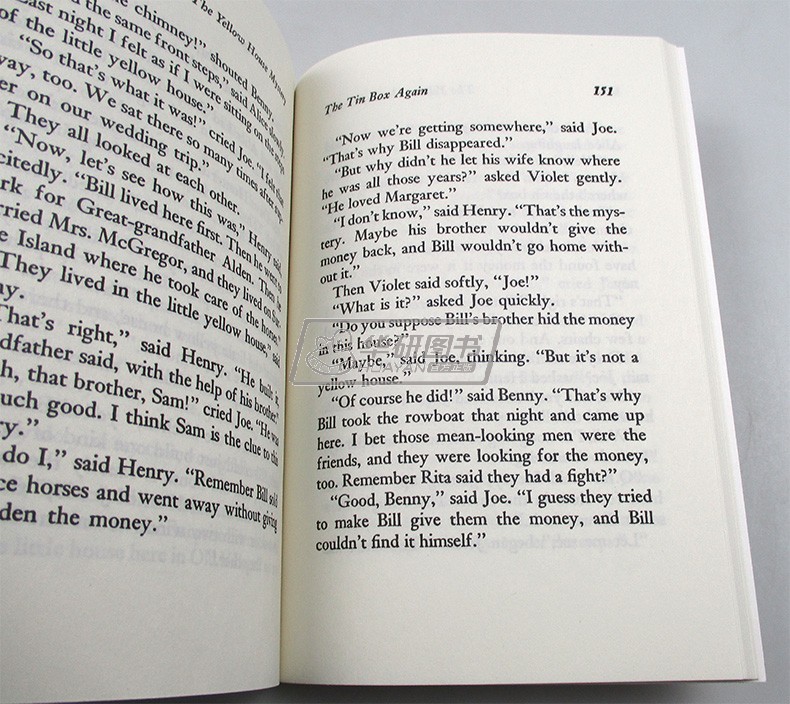 The Yellow House Mystery
chimney!" shouted Benny.
the same front steps," said Alice slowly.
Last night I felt as if I were sitting on the steps
of the little yellow house."
"So that's what it was!" cried Joe. "I felt that
way, too. We sat there so many times after
on our wedding trip."
They all looked at each other.
"Now, let's see how this was," Henry said
citedly. "Bill lived here first. Then he went to
rk for Great-grandfather Alden. Then he
rried Mrs. McGregor, and they lived on Sur-
e Island where he took care of the horses.
They lived in the little yellow house," said
ny.
That's right," said Henry. "He built it,
dfather said, with the help of his brother."
h, that brother, Sam!" cried Joe. "He was
uch good. I think Sam is the clue to this
ry."
do I," said Henry. "Remember Bill sold
ce horses and went away without giving
dden the money."
The Tin Box Again 151
"Now we're getting somewhere," said Joe.
"That's why Bill disappeared."
"But why didn't he let his wife know where
he was all those years?" asked Violet gently.
"He loved Margaret."
"I don't know," said Henry. "That's the mys-
tery. Maybe his brother wouldn't give the
money back, and Bill wouldn't go home with-
out it."
Then Violet said softly, "Joe!"
"What is it?" asked Joe quickly.
"Do you suppose Bill's brother hid the money
in this house?"
"Maybe," said Joe, thinking. "But it's not a
yellow house."
"Of course he did!" said Benny. "That's why
Bill took the rowboat that night and came up
here. I bet those mean-looking men were the
friends, and they were looking for the money,
too. Remember Rita said they had a fight?"
"Good, Benny," said Joe. "I guess they tried
to make Bill give them the money, and Bill
couldn't find it himself."
华研图书
HUAYAN 官方正版